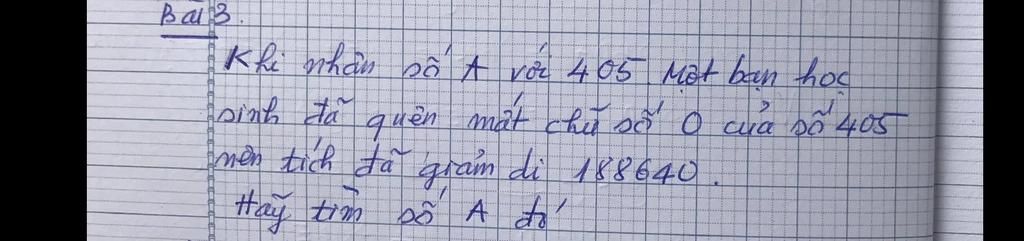 Bài 3.
Khi nhân số A với 405. Một bạn học
sinh đã quên mất chữ số 0 của số 405
nên tích đã giảm đi 188640.
Hãy tìm số A đó